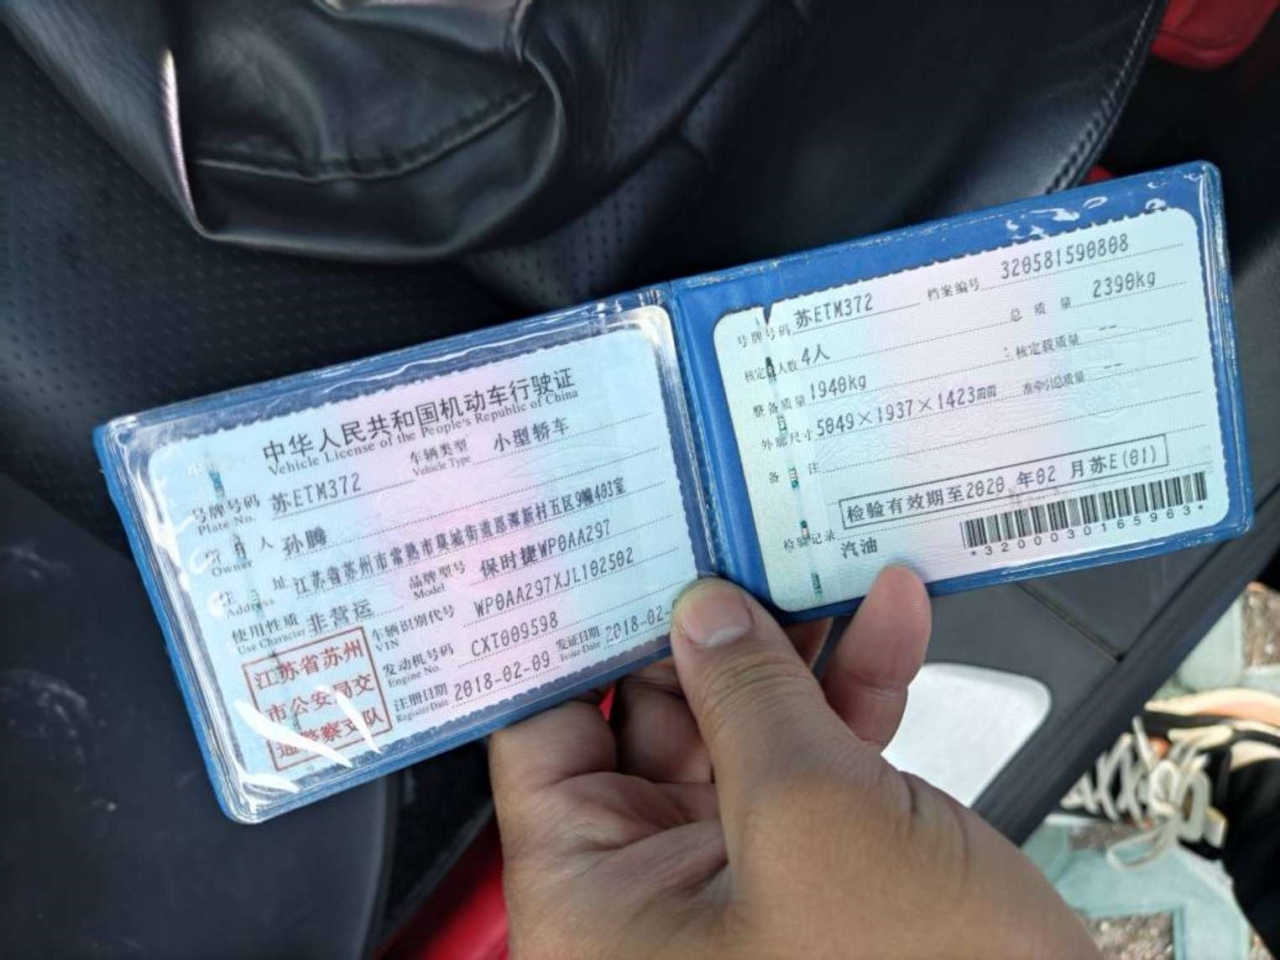 中华人民共和国机动车行驶证
Vehicle License of the People's Republic of China
号牌号码 苏ETM372 车辆类型 小型轿车
Plate No. Vehicle Type
人 孙腾
Owner
址 江苏省苏州市常熟市莫城街道恩源新村五区9幢403室
Address
使用性质 非营运 品牌型号 保时捷WP0AA297
Use Character Model
车辆识别代号 WP0AA297XJL102502
VIN
发动机号码 CXT009598
Engine No.
注册日期 2018-02-09 发证日期 2018-02-
Register Date Issue Date
江苏省苏州
市公安局交
通警察支队
号牌号码 苏ETM372 档案编号 320581590808
核定人数 4人 总质量 2390kg
整备质量 1940kg 核定载质量 --
外廓尺寸 5049×1937×1423mm 准牵引总质量 --
备注
检验有效期至2020年02月苏E(01)
检验记录
汽油
*3200030165963*